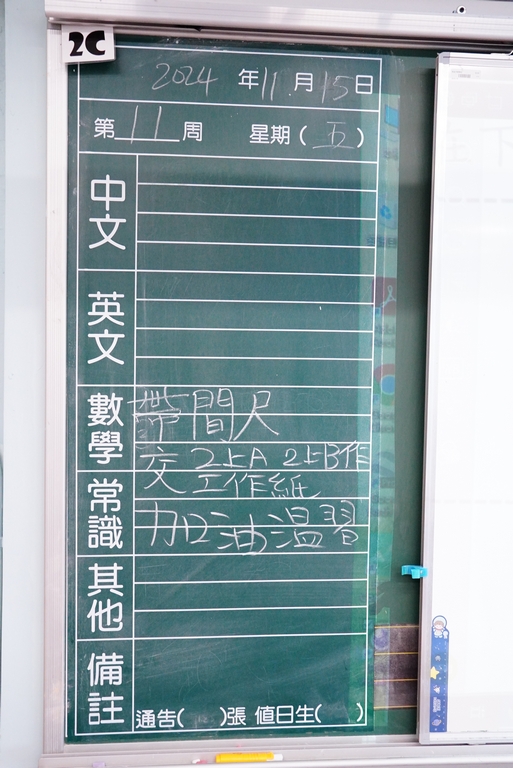 2C
2024 年 11 月 15 日
第 11 周 星期(五)
中文
英文
數學
帶間尺
交 2上A 2上B作
常識
交工作紙
加油溫習
其他
備註
通告( )張 值日生( )